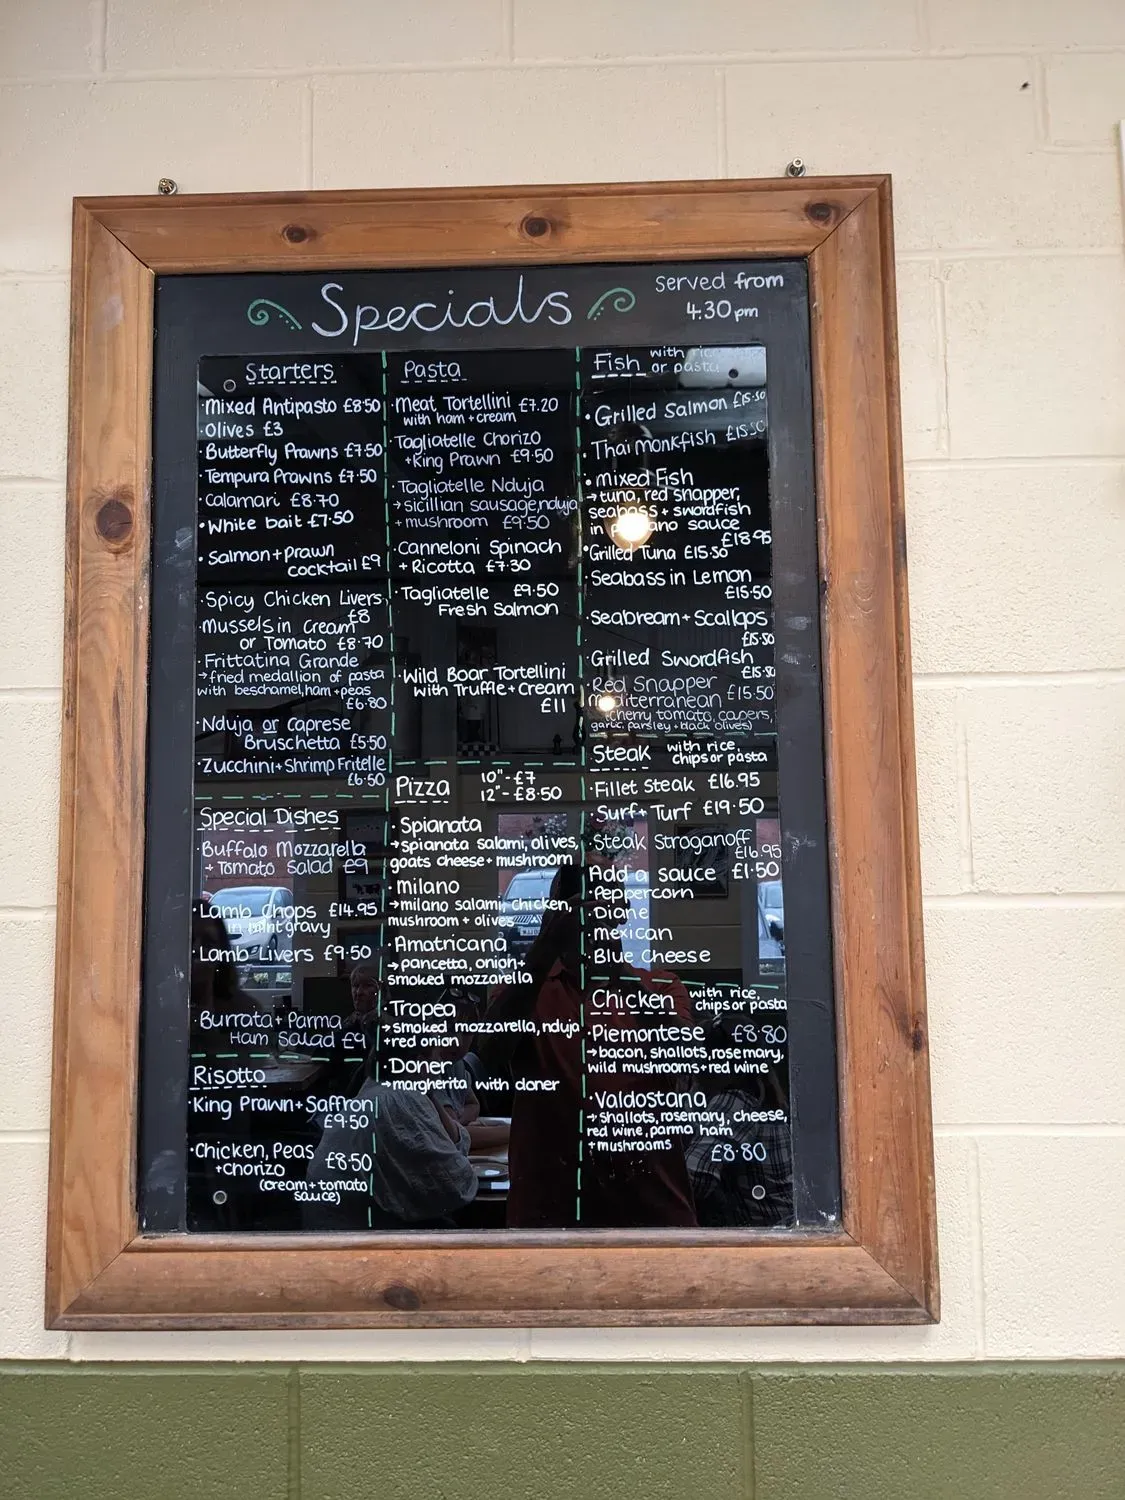 Specials
served from
4.30pm
Starters
·Mixed Antipasto £8·50
·Olives £3
·Butterfly Prawns £7·50
·Tempura Prawns £7·50
·Calamari £8.70
·White bait £7·50
·Salmon + prawn
cocktail £9
·Spicy Chicken Livers
£8
·Mussels in Cream
or Tomato £8·70
·Frittatina Grande
→fried medallion of pasta
with beschamel, ham + peas
£6·80
·Nduja or Caprese
Bruschetta £5·50
·Zucchini + Shrimp Fritelle
£6·50
Special Dishes
·Buffalo Mozzarella
+ Tomato Salad £9
·Lamb Chops £14.95
in mint gravy
·Lamb Livers £9·50
·Burrata + Parma
Ham Salad £9
Risotto
·King Prawn + Saffron
£9·50
·Chicken, Peas
+chorizo £8·50
(cream + tomato
sauce)
Pasta
·Meat Tortellini £7.20
with ham + cream
·Tagliatelle Chorizo
+King Prawn £9·50
·Tagliatelle Nduja
→sicillian sausage, nduja
+ mushroom £9·50
·Canneloni Spinach
+ Ricotta £7·30
·Tagliatelle £9·50
Fresh Salmon
·Wild Boar Tortellini
with Truffle + Cream
£11
Pizza 10"-£7
12"-£8·50
·Spianata
→spianata salami, olives,
goats cheese + mushroom
·milano
→milano salami, chicken,
mushroom + olives
·Amatricana
→pancetta, onion +
smoked mozzarella
·Tropea
→smoked mozzarella, nduja
+red onion
·Doner
→margherita with doner
Fish with rice
or pasta
·Grilled Salmon £15·50
·Thai monkfish £15·50
·mixed Fish
→tuna, red snapper,
seabass + swordfish
in sauce
£18·95
·Grilled Tuna £15·50
·Seabass in Lemon
£15·50
·Seabream + Scallops
£15·50
·Grilled Swordfish
£15·50
·Red Snapper
mediterranean £15·50
(cherry tomato, capers,
garlic, parsley + black olives)
Steak with rice,
chips or pasta
·Fillet Steak £16.95
·Surf + Turf £19·50
·Steak Stroganoff
£16.95
Add a sauce £1·50
·Peppercorn
·Diane
·mexican
·Blue Cheese
Chicken with rice,
chips or pasta
·Piemontese £8·80
→bacon, shallots, rosemary,
wild mushrooms + red wine
·Valdostana
→shallots, rosemary, cheese,
red wine, parma ham
+mushrooms £8·80